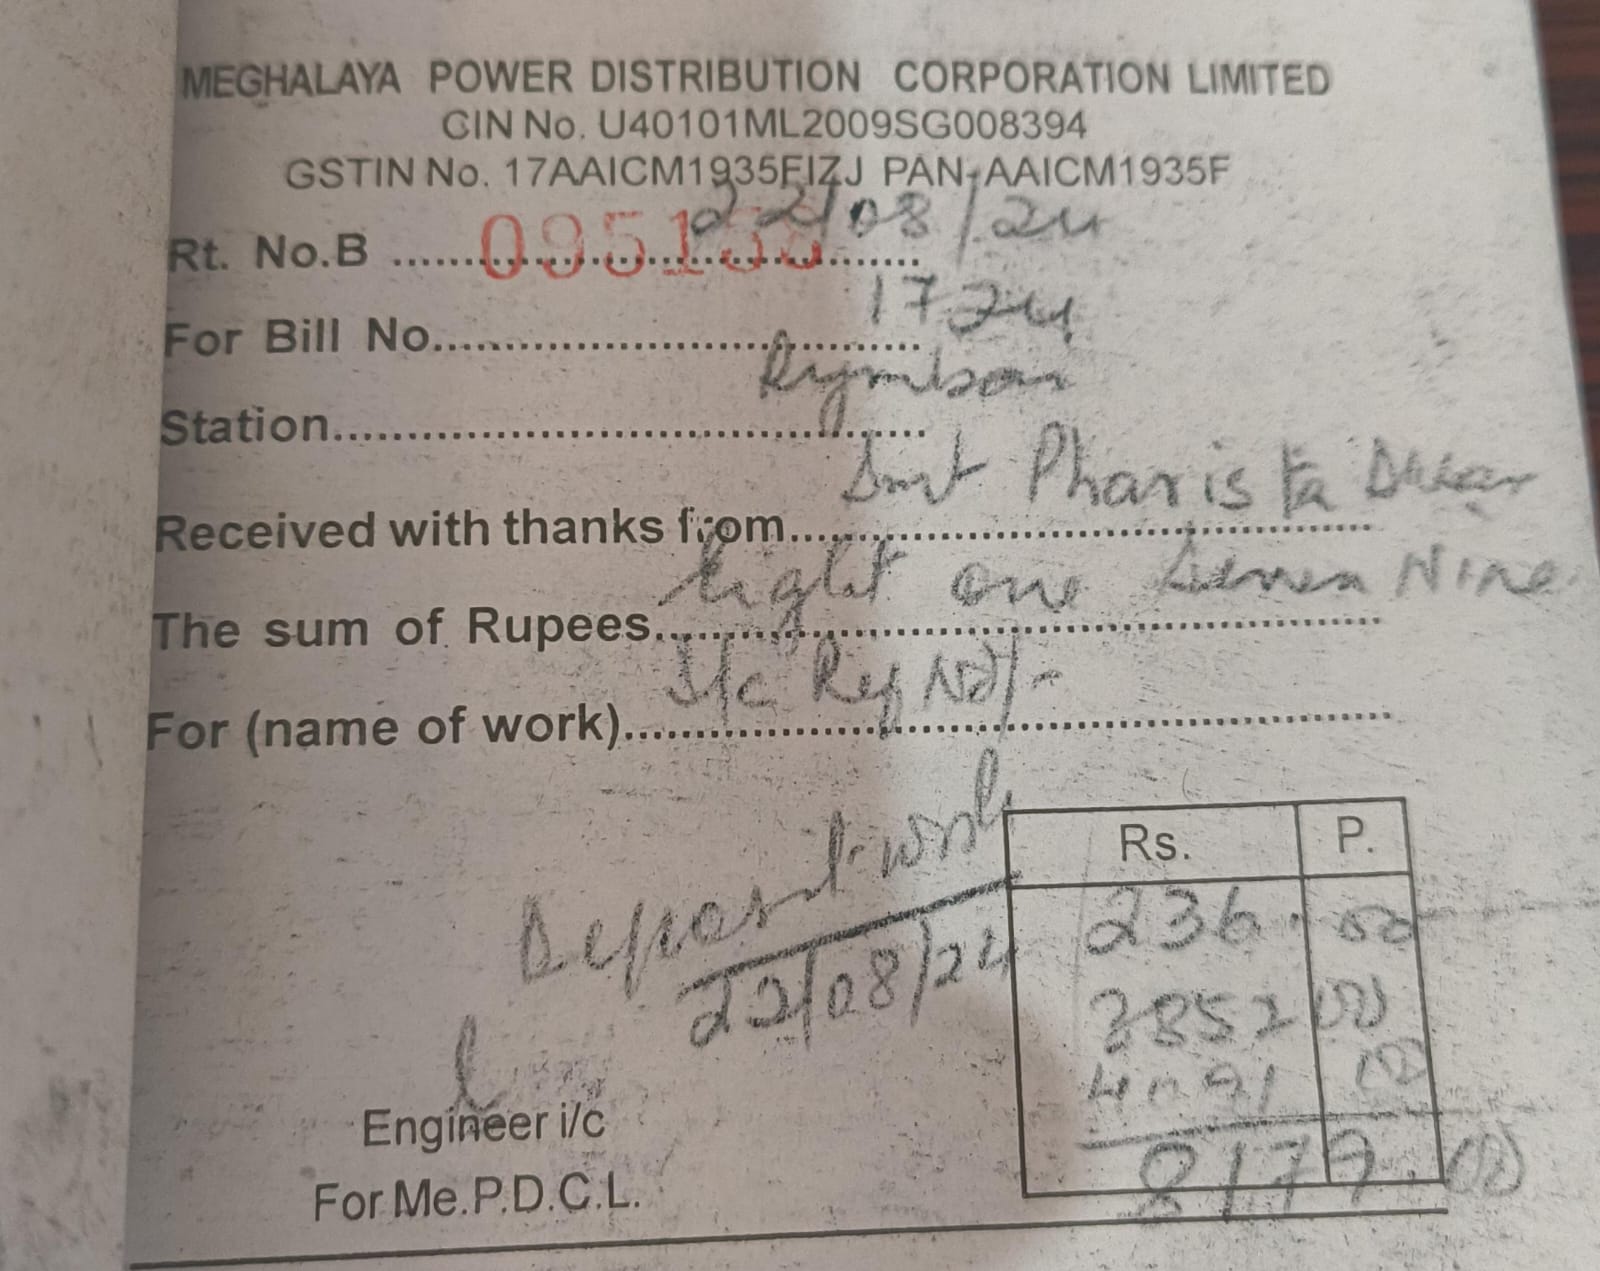 MEGHALAYA POWER DISTRIBUTION CORPORATION LIMITED
CIN No. U40101ML2009SG008394
GSTIN No. 17AAICM1935FIZJ PAN-AAICM1935F
22/08/24
Rt. No.B
For Bill No. 1724
Station Rymbai
Received with thanks from Smt Pharista Dkhar
The sum of Rupees Eight one Seven Nine
For (name of work) S/c Reg No/-
Deposit work
22/08/24
Rs. P.
236.00
3852 00
4091 00
8179.00
Engineer i/c
For Me.P.D.C.L.